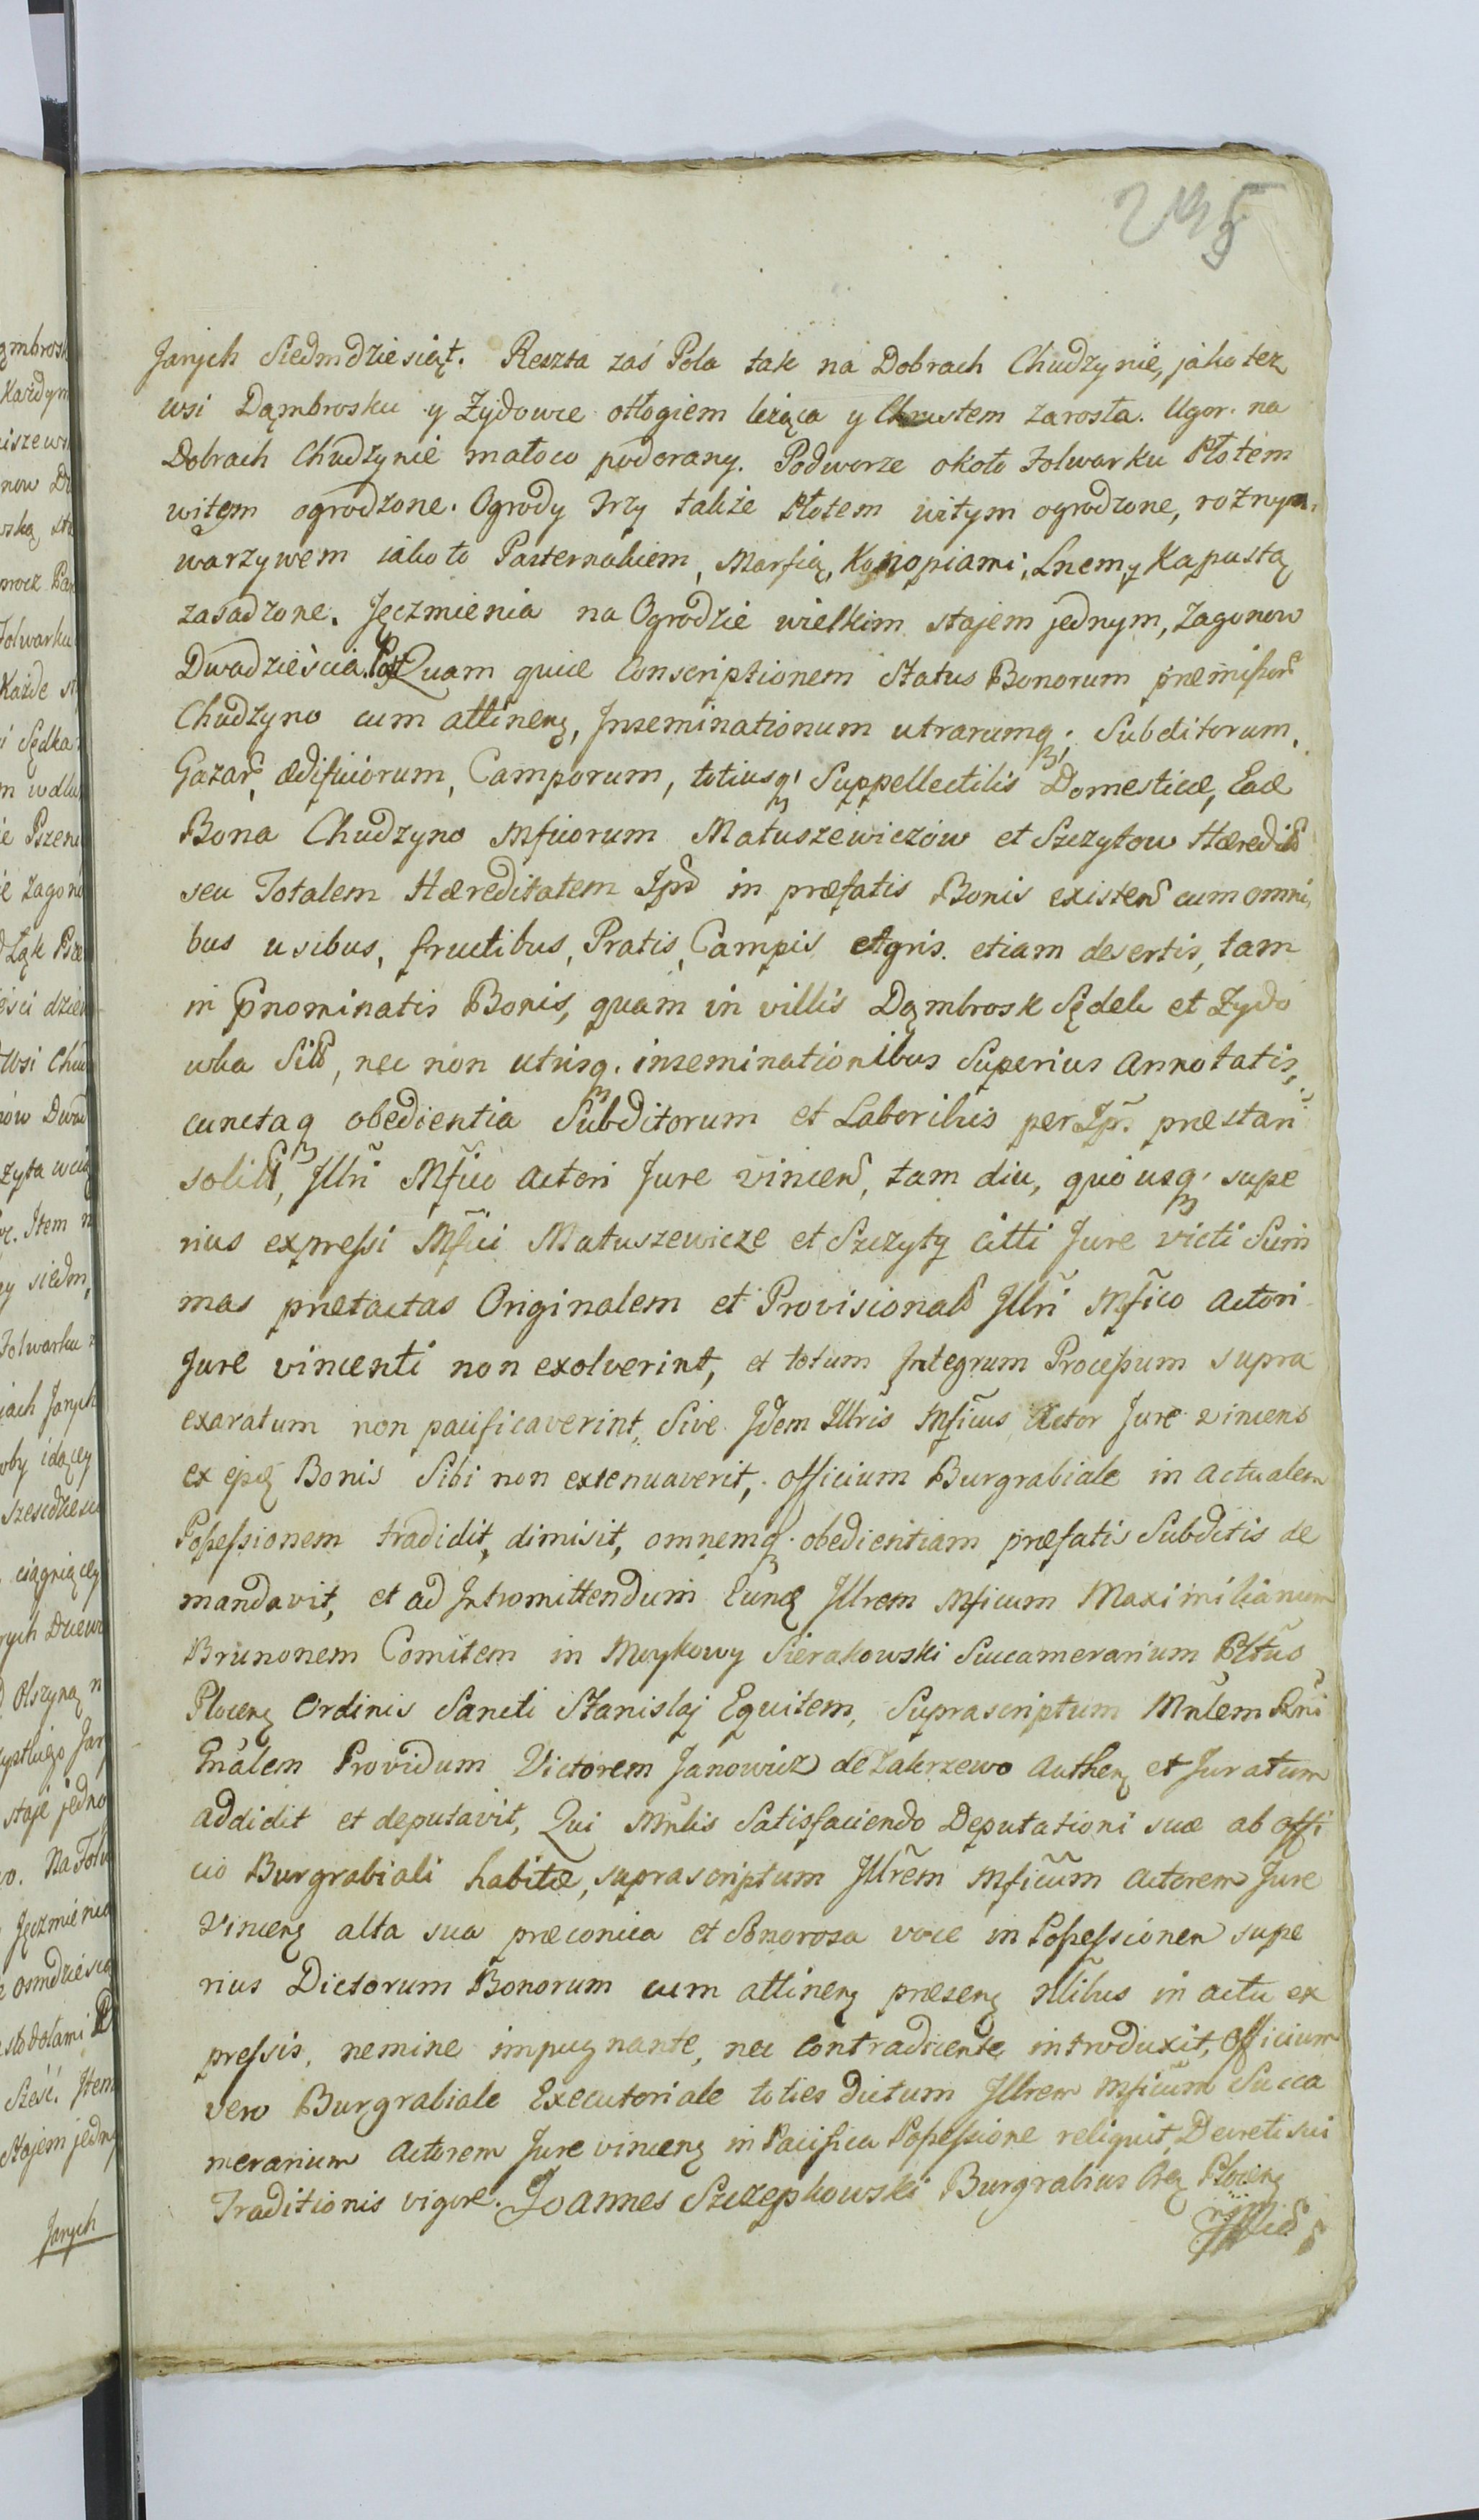 245
Jarych Siedmdziesiąt. Reszta zaś Pola tak na Dobrach Chudzynie, jako też
wsi Dąmbrosku y Żydowce odłogiem leżąca y Chrustem zarosła. Ugor na
Dobrach Chudzynie małoco podorany. Podworze około Folwarku Płotem
witym ogrodzone. Ogrody Trzy także Płotem witym ogrodzone, rożnym
warzywem iako to Pasternakiem, Marfią, Konopiami, Lnem y Kapustą
zasadzone. Jęczmienia na Ogrodzie wielkim stajem jednym, Zagonow
Dwadzieścia. Post Quam quidē Conscriptionem Status Bonorum præmissor
Chudzyno cum attinen, Inseminationum utrarumq; Subditorum,
Gazar, ædificiorum, Camporum, totiusq; Suppellectilis Domesticæ, Eadē
Bona Chudzyno Mficorum Matuszewiczów et Szczytow Hæredit
seu Totalem Hæreditatem Ipr in præfatis Bonis existen cum omni,
bus usibus, fructibus, Pratis, Campis Agris etiam desertis, tam
in prænominatis Bonis, quam in villis Dąmbrosk Sędek et Zydo
wka Sitt, nec non utrisq; inseminationibus Superius Annotatis,
cunctaq obedientia Subditorum et Laboribus per Ipr. præstari
solitt, Jllri Mfico Actori Jure vincen, tam diu, quousq; supe
rius expressi Mfici Matuszewicze et Szczyty citti Jure victi Sum
mas prætactas Originalem et Provisional Jllri Mfico Actori
Jure vincenti non exolverint, et totum Integrum Processum supra
exaratum non pacificaverint, Sive Idem Jllris Mficus Actor Jure vincens
ex ejsd Bonis Sibi non extenuaverit, officium Burgrabiale in actualem
Possessionem tradidit, dimisit, omnemq; obedientiam præfatis Subditis de
mandavit, et ad Intromittendum Eund Jllrem Mficum Maximilianum
Brunonem Comitem in Moykowy Sierakowski Succamerarium Pltus
Plocen Ordinis Sancti Stanislaj Equitem, Suprascriptum Mnlem Rni
Gnalem Providum Victorem Janowicz de Zakrzewo Authen et Juratum
addidit et deputavit, Qui Mnlis Satisfaciendo Deputationi suæ ab offi
cio Burgrabiali habitæ, suprascriptum Jllrem Mficum Actorem Jure
Vincen alta sua præconica et Sonorosa voce in Possessionem supe
rius Dictorum Bonorum cum attinen præsen Nlibus in actu ex
pressis, nemine impugnante, nec contradicente introduxit, Officium
vero Burgrabiale Executoriale toties dictum Jllrem Mficum Succa
merarium Actorem Jure vincen in Pacifica Possessione reliquit, Decreti sui
Traditionis vigore. Joannes Szczepkowski Burgrabius Plocen